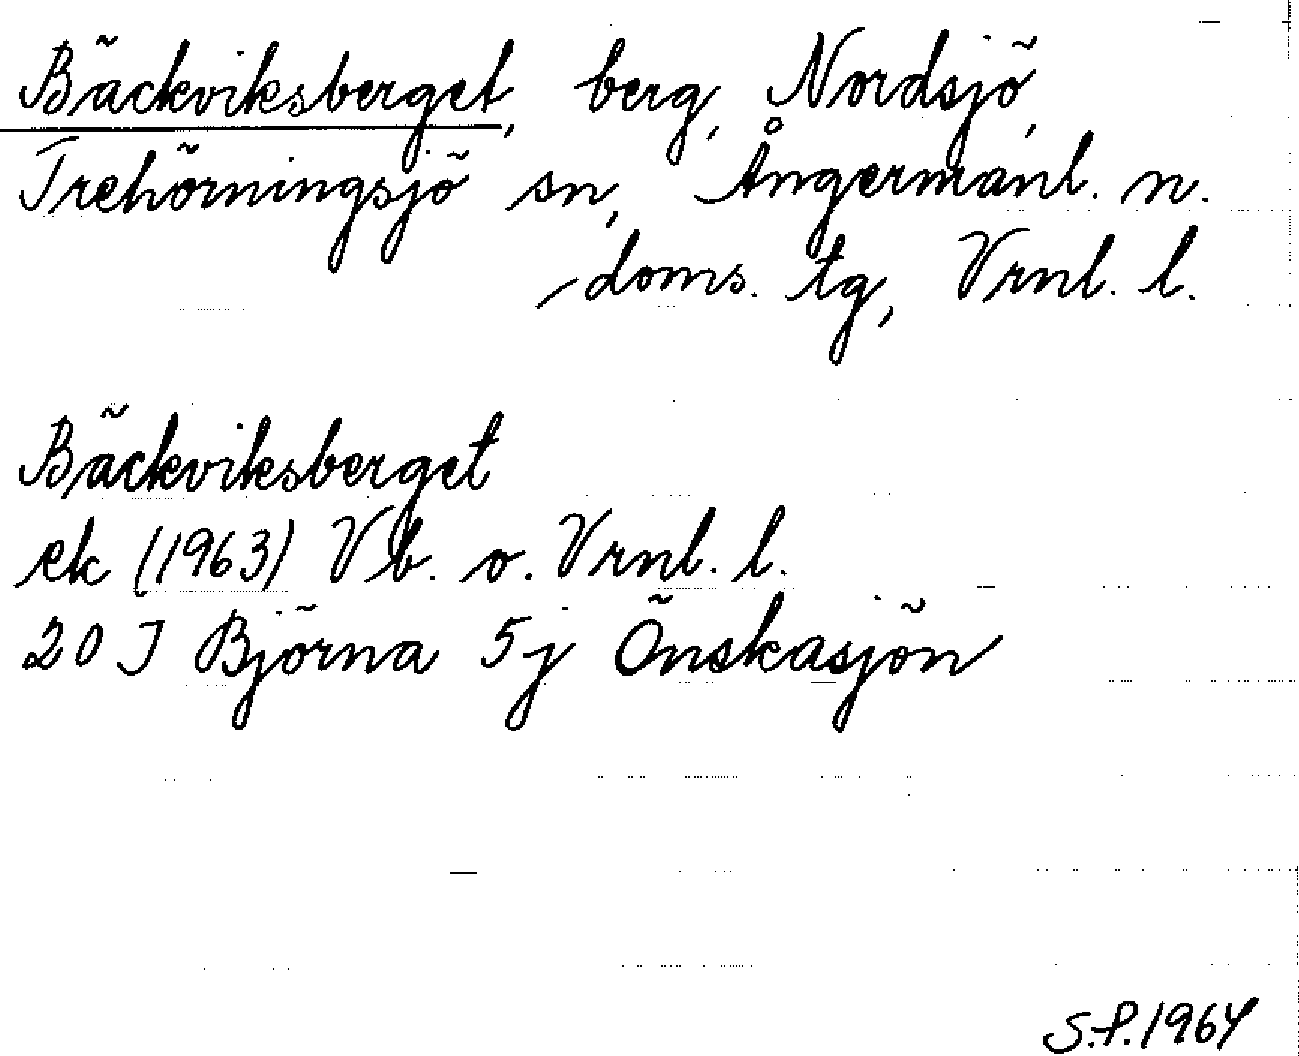 Bäckviksberget, berg, Nordsjö,
Trehörningsjö sn, Ångermanl. n.
doms. tg, Vrnl. l.
Bäckviksberget
ek (1963) Vb. o. Vrnl. l.
20 J Björna 5j Önskasjön
S.P. 1964